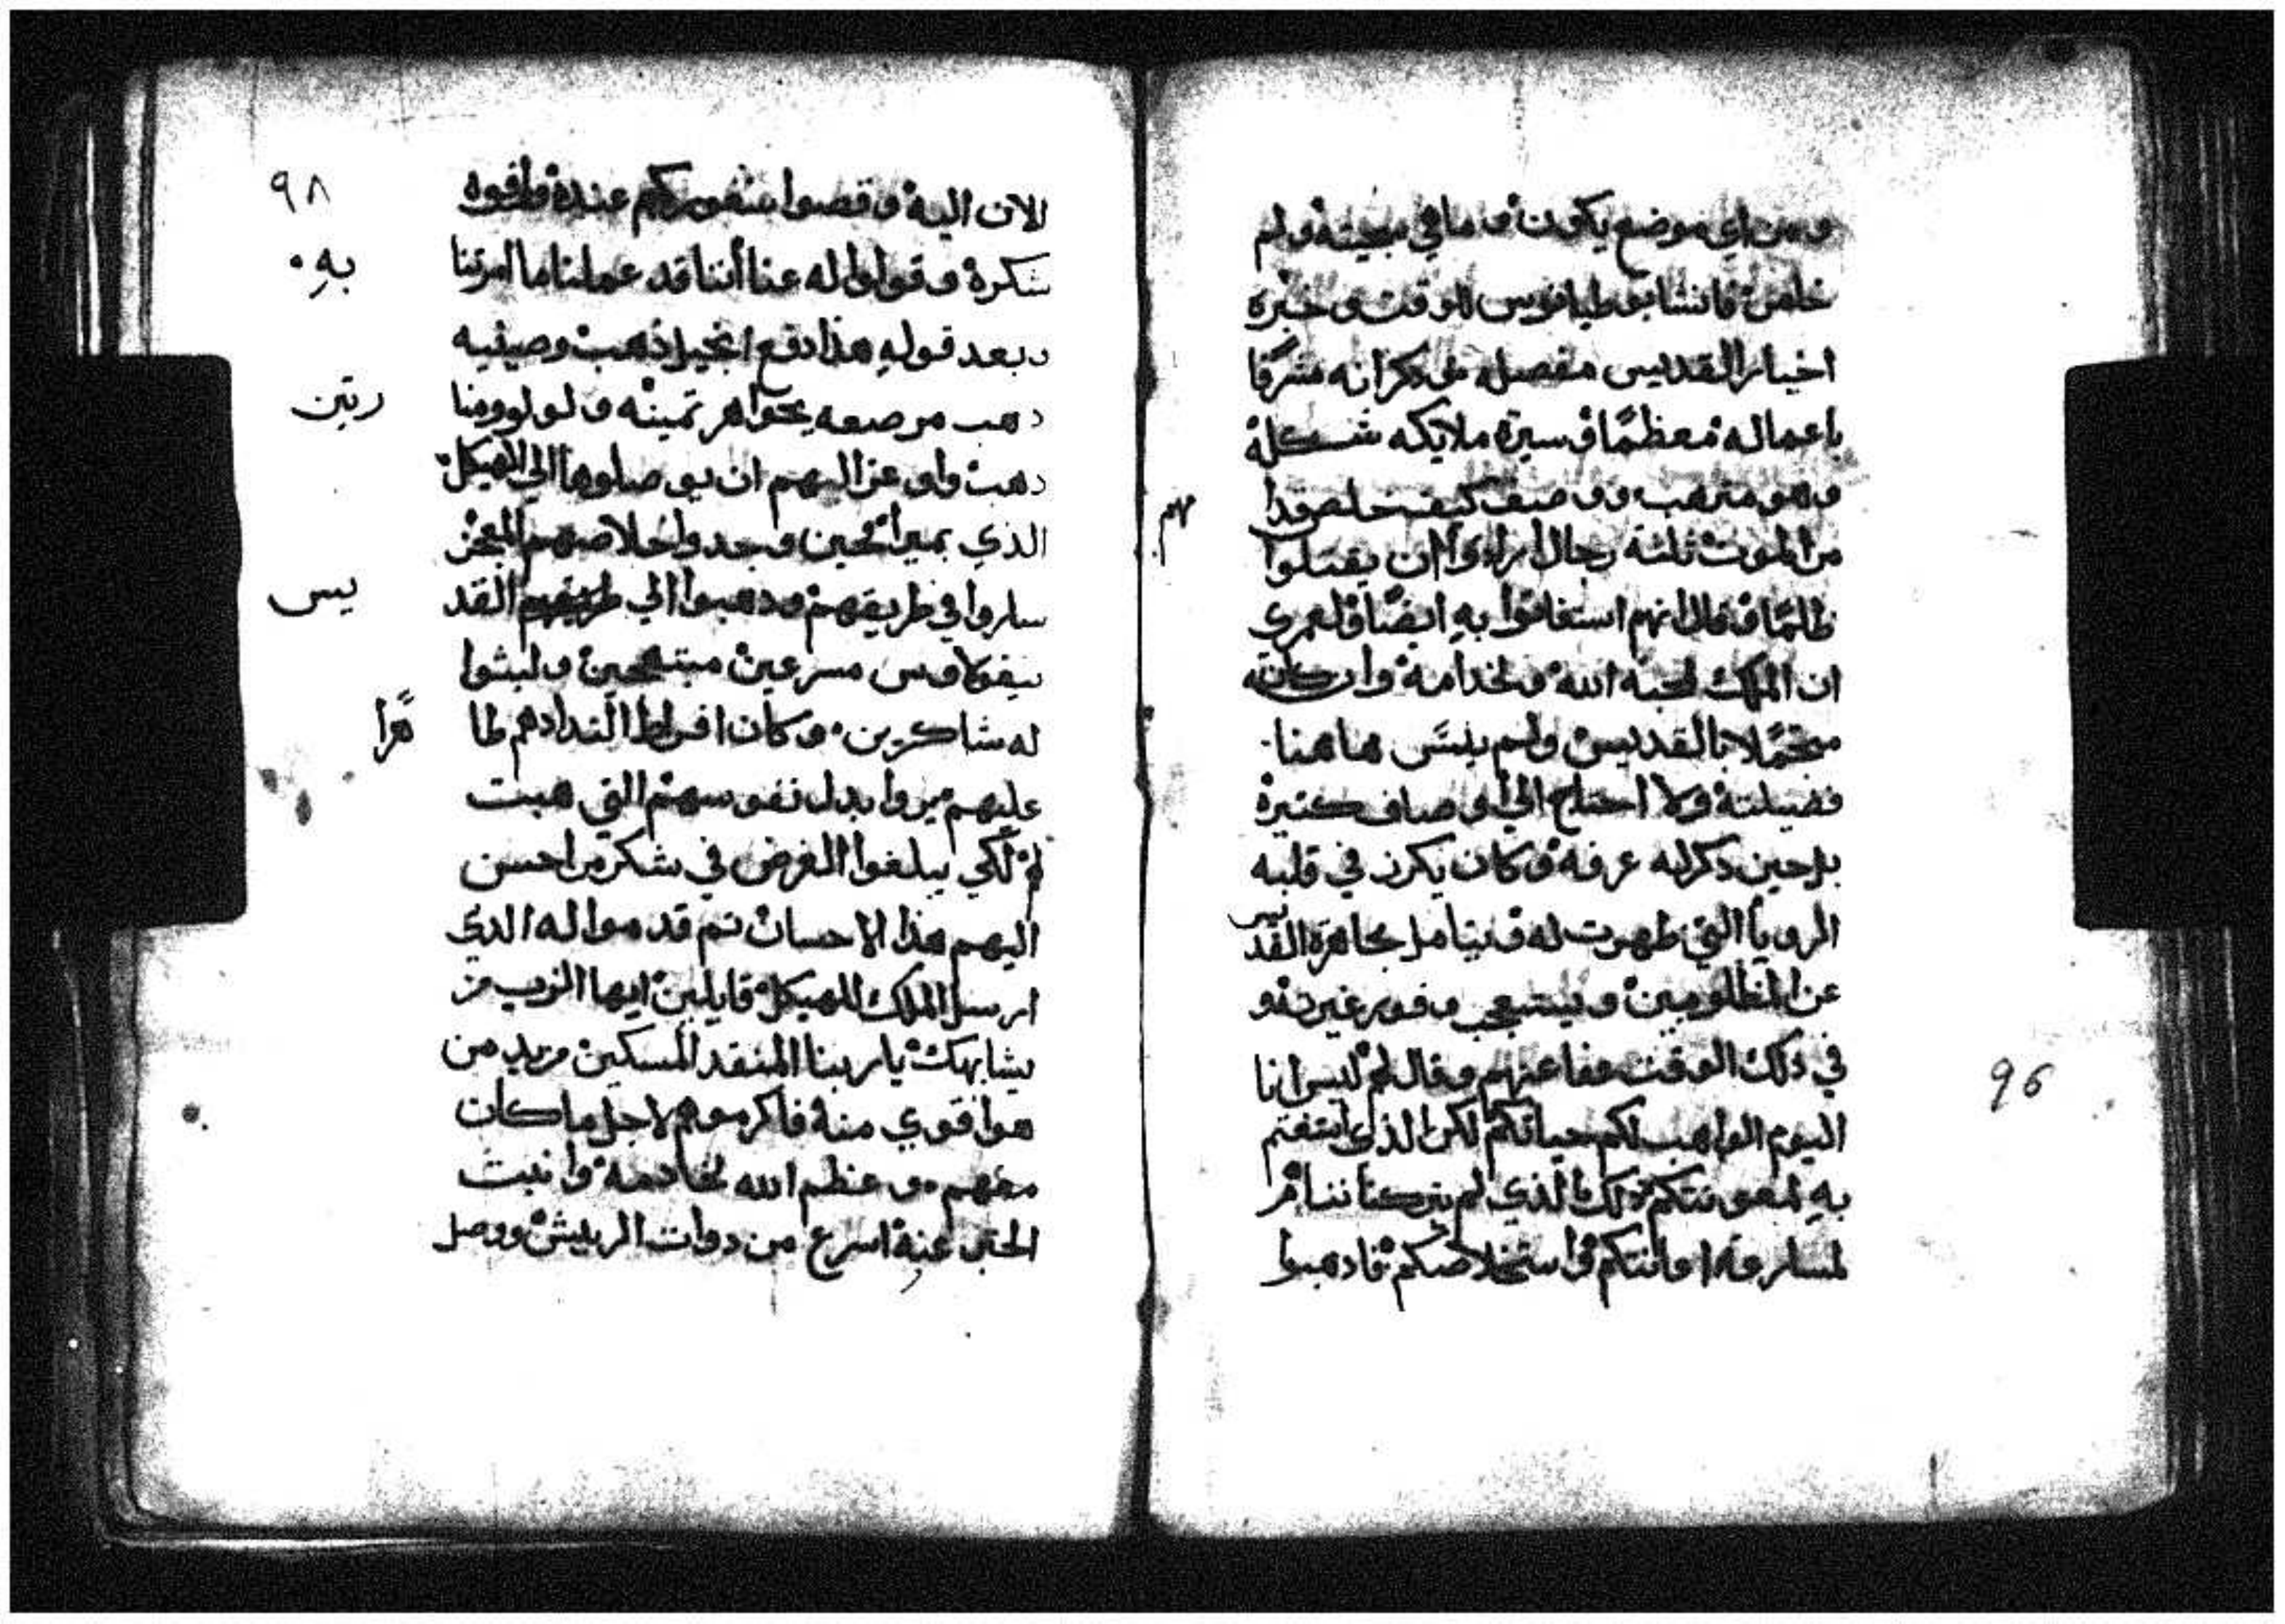 ومن اي موضع يكون وما هي سجيته ولم
خلص فانشا بوطيانوس للوقت وخبره
اخبار القديس مفصله وذكر انه مشرفا
باعماله معظما وسيرة ملايكه شكله
وهو مترهب ووصف كيف خلص قدا
مهم
من الموت ثلثة رجال ارادوا ان يقتلوا
ظلما وقال انهم استغاثوا به ايضا ولعمري
ان الملك لمحبه الله ولخدامه وان كانه
متحملا بالقديس ولم ينسى هاهنا
فضيلته ولا احتاج الي اوصاف كثيرة
بل حين ذكر له عرفه وكان يكرز في قلبه
الرويا التي ظهرت له ويتامل مجاهرة القديس
عن المظلومين ويتعجب وفور غيرته و
في ذلك الوقت عفا عنهم وقال لهم ليس انا
اليوم الواهب لكم حياتكم لكن الذي استغثتم
به لمعونتكم ذلك الذي لم يتركنا ننا امر
لمسارعه اعانتكم واستخلاصكم فاذهبوا
96
٩٨
الان اليه وقصوا شعوركم عنده واوفوه
شكره وقولوا له عنا أننا قد عملنا ما امرتنا
به
وبعد قوله هذا دفع انجيل ذهب وصينيه
دهب مرصعه بجواهر ثمينه ولولو ومنا
رتين
دهب واوعز اليهم ان يوصلوها الي الهيكل
الذي بميرا فحين وجدوا خلاصهم المعجز
ساروا في طريقهم ودهبوا الي طريقهم القد
يس
نيقولاوس مسرعين مبتهجين ولبثوا
له شاكرين وكان افراط التدادهم طا
هرا
عليهم بدل نفوسهم التي هبت
لهم لكي يبلغوا الغرض في شكر من احسن
اليهم هذا الاحسان ثم قدموا له الذي
ارسل الملك للهيكل قايلين ايها الرب من
يشابهك يا ربنا المنقد المسكين من يد من
هو اقوي منه فاكرموهم لاجل ما كان
معهم وعظم الله لخادمه وانبت
الخبر عنه اسرع من دوات الريش ووصل